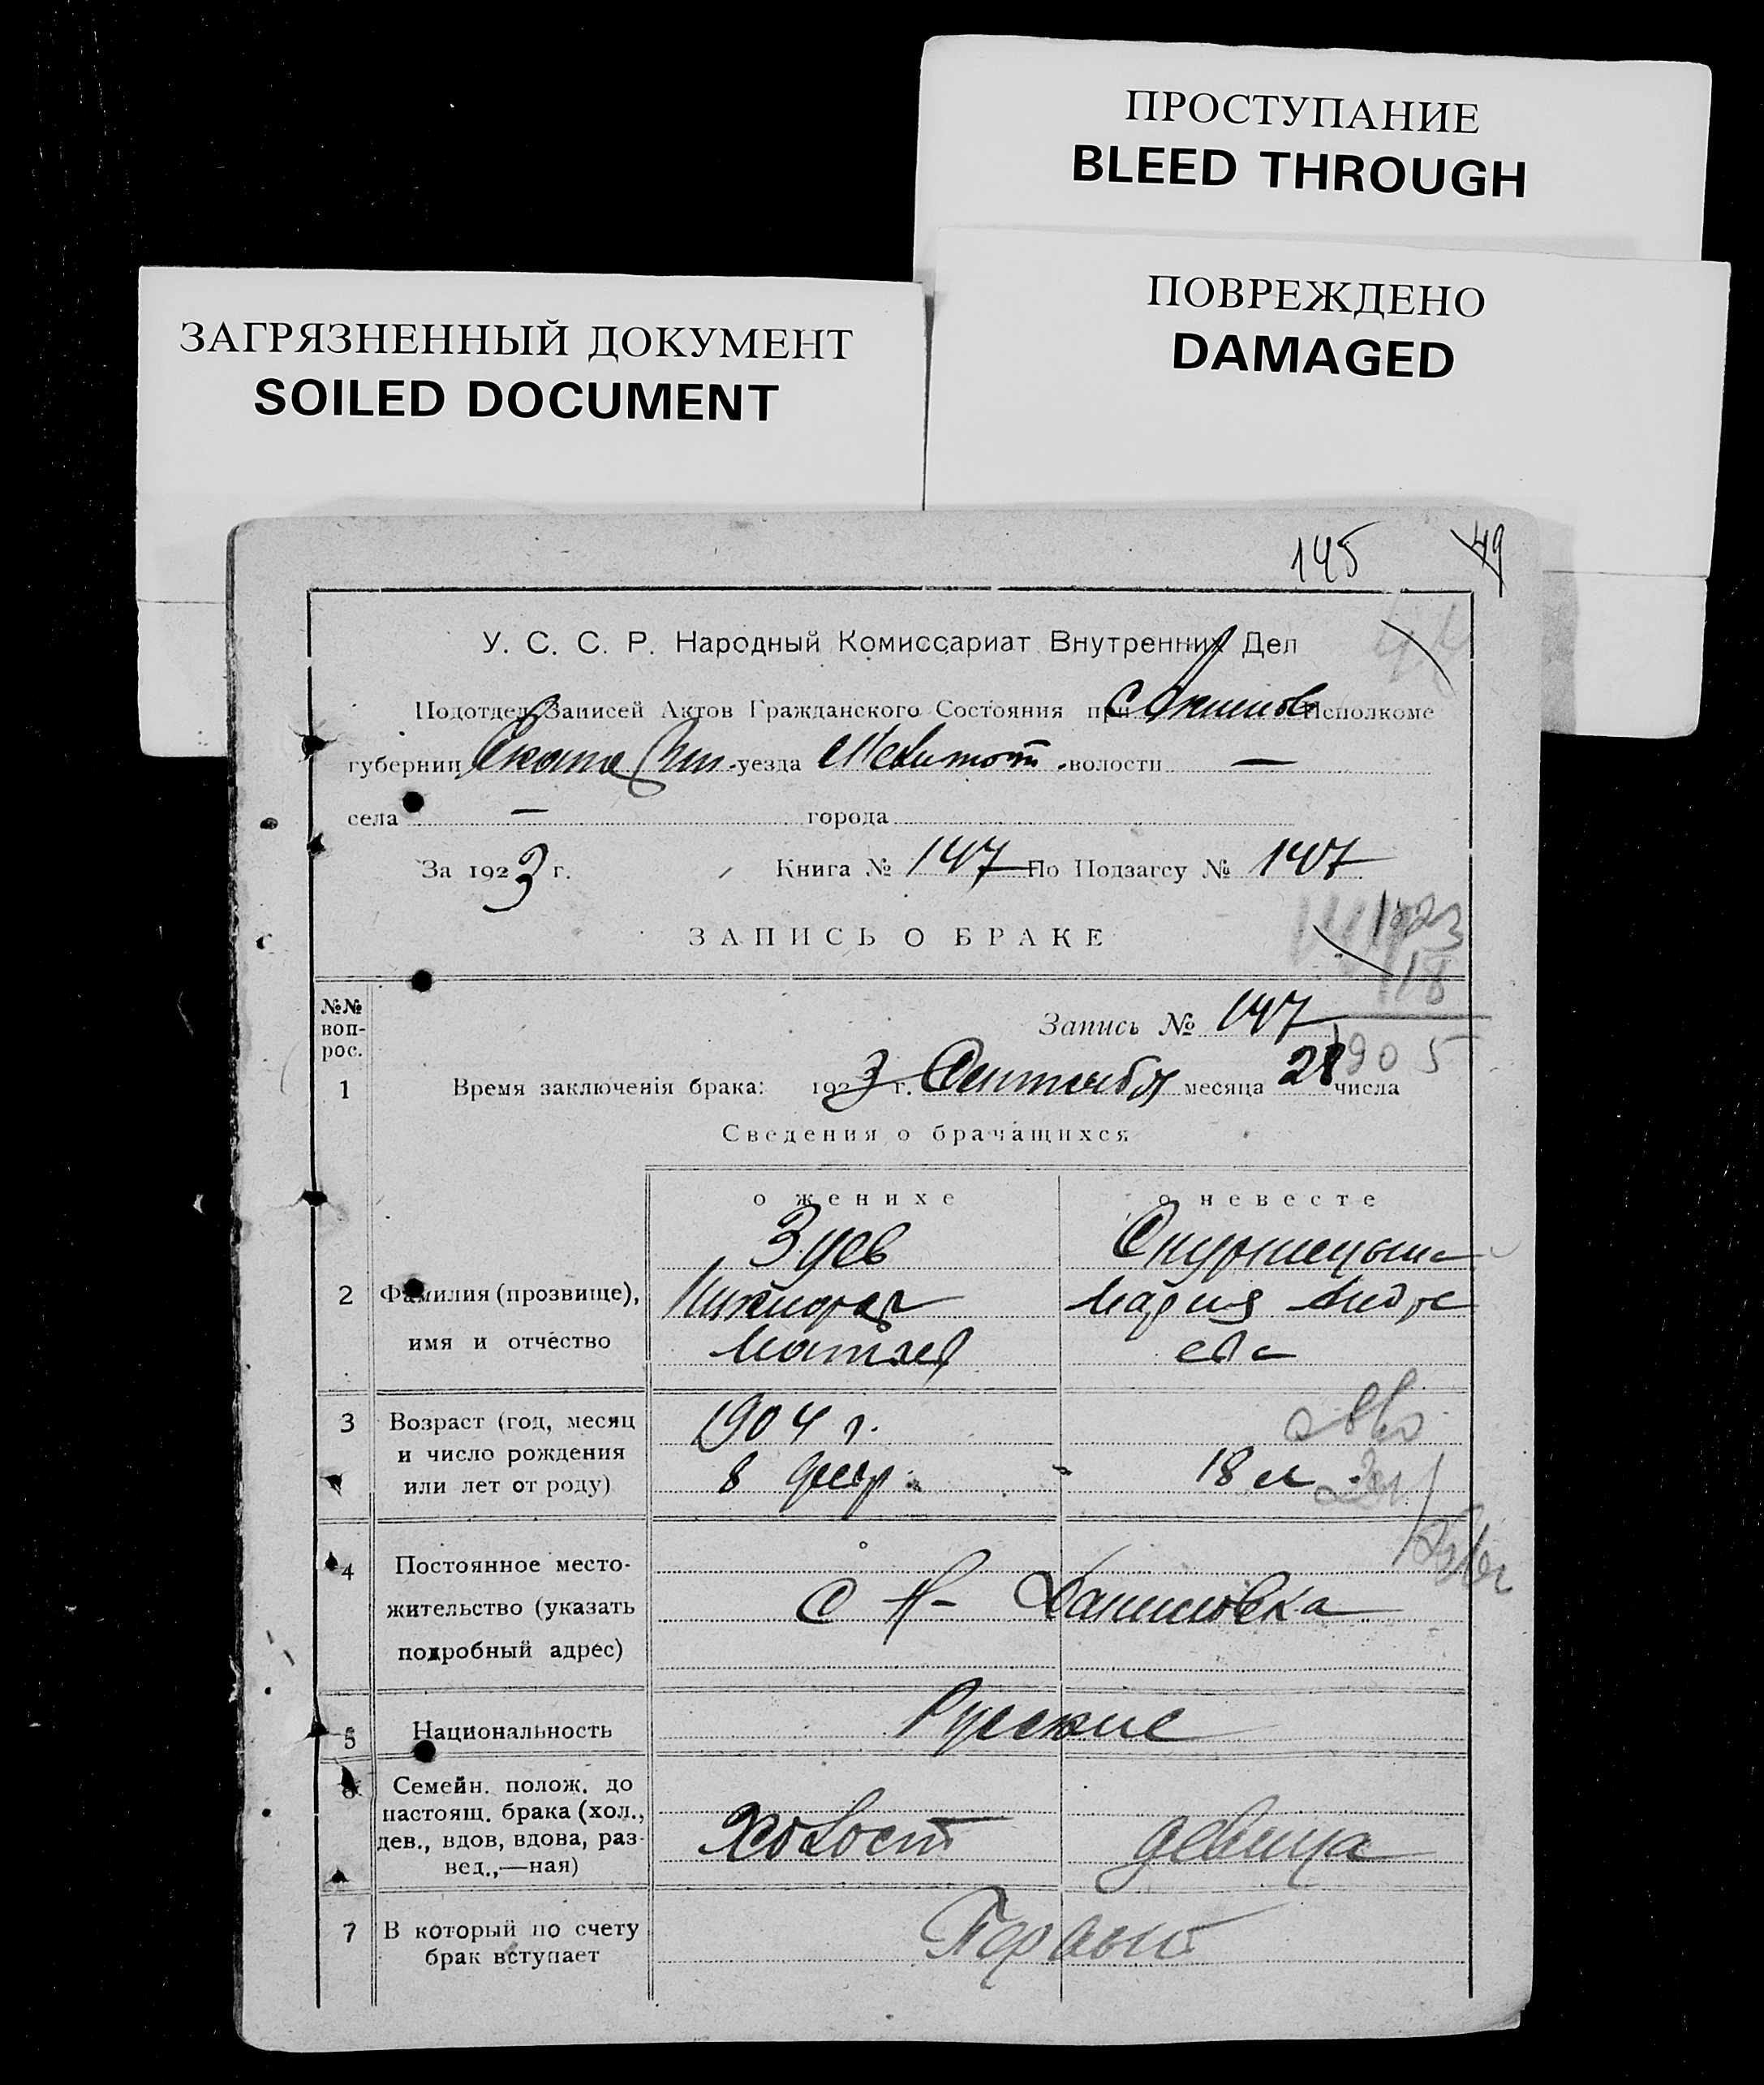 ПРОСТУПАНИЕ
BLEED THROUGH
ПОВРЕЖДЕНО
DAMAGED
ЗАГРЯЗНЕННЫЙ ДОКУМЕНТ
SOILED DOCUMENT
145 49
У. С. С. Р. Народный Комиссариат Внутренних Дел
Подотдел Записей Актов Гражданского Состояния при Исполкоме
губернии уезда Мелитоп. волости —
села — города
За 1923 г. Книга № 147 По Подзагсу № 147
1923
ЗАПИСЬ О БРАКЕ
18
№№ воп-рос.
Запись № 147
1905
1 Время заключенія брака: 1923 г. Сентября месяца 28 числа
Сведения о брачащихся
о женихе о невесте
Зуев
2 Фамилия (прозвище), Мария Андре
имя и отчество ева
3 Возраст (год, месяц 1904 г.
и число рождения
или лет от роду) 8 февр. 18 л
4 Постоянное место-
жительство (указать Даниловка
подробный адрес)
5 Национальность Русские
6 Семейн. полож. до
настоящ. брака (хол.,
дев., вдов, вдова, раз- Холост девица
вед.,—ная)
7 В который по счету Первый
брак вступает